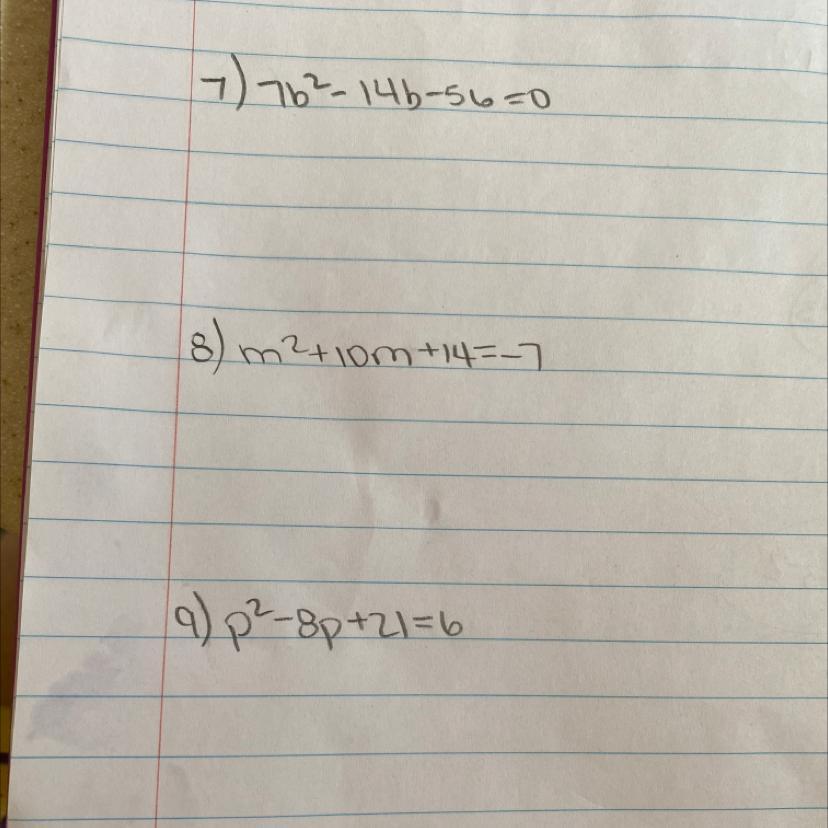 7) 7b²-14b-56=0
8) m²+10m+14=-7
9) p²-8p+21=6